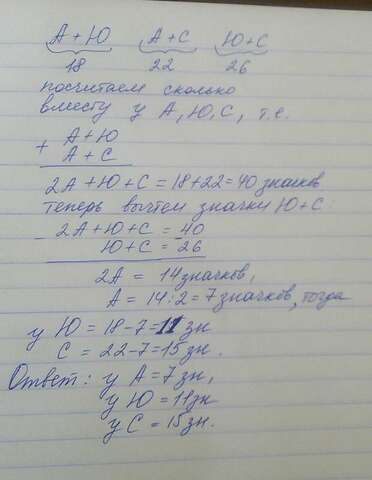 А+Ю А+С Ю+С
18 22 26
посчитаем сколько
вместу у А, Ю, С, т.е.
+ А+Ю
А+С
2А+Ю+С=18+22=40 значков
теперь вычтем значки Ю+С
- 2А+Ю+С = 40
Ю+С = 26
2А = 14 значков,
А = 14:2=7 значков, тогда
у Ю = 18-7=11 зн
С = 22-7=15 зн.
Ответ: у А=7 зн,
у Ю = 11 зн
у С = 15 зн.